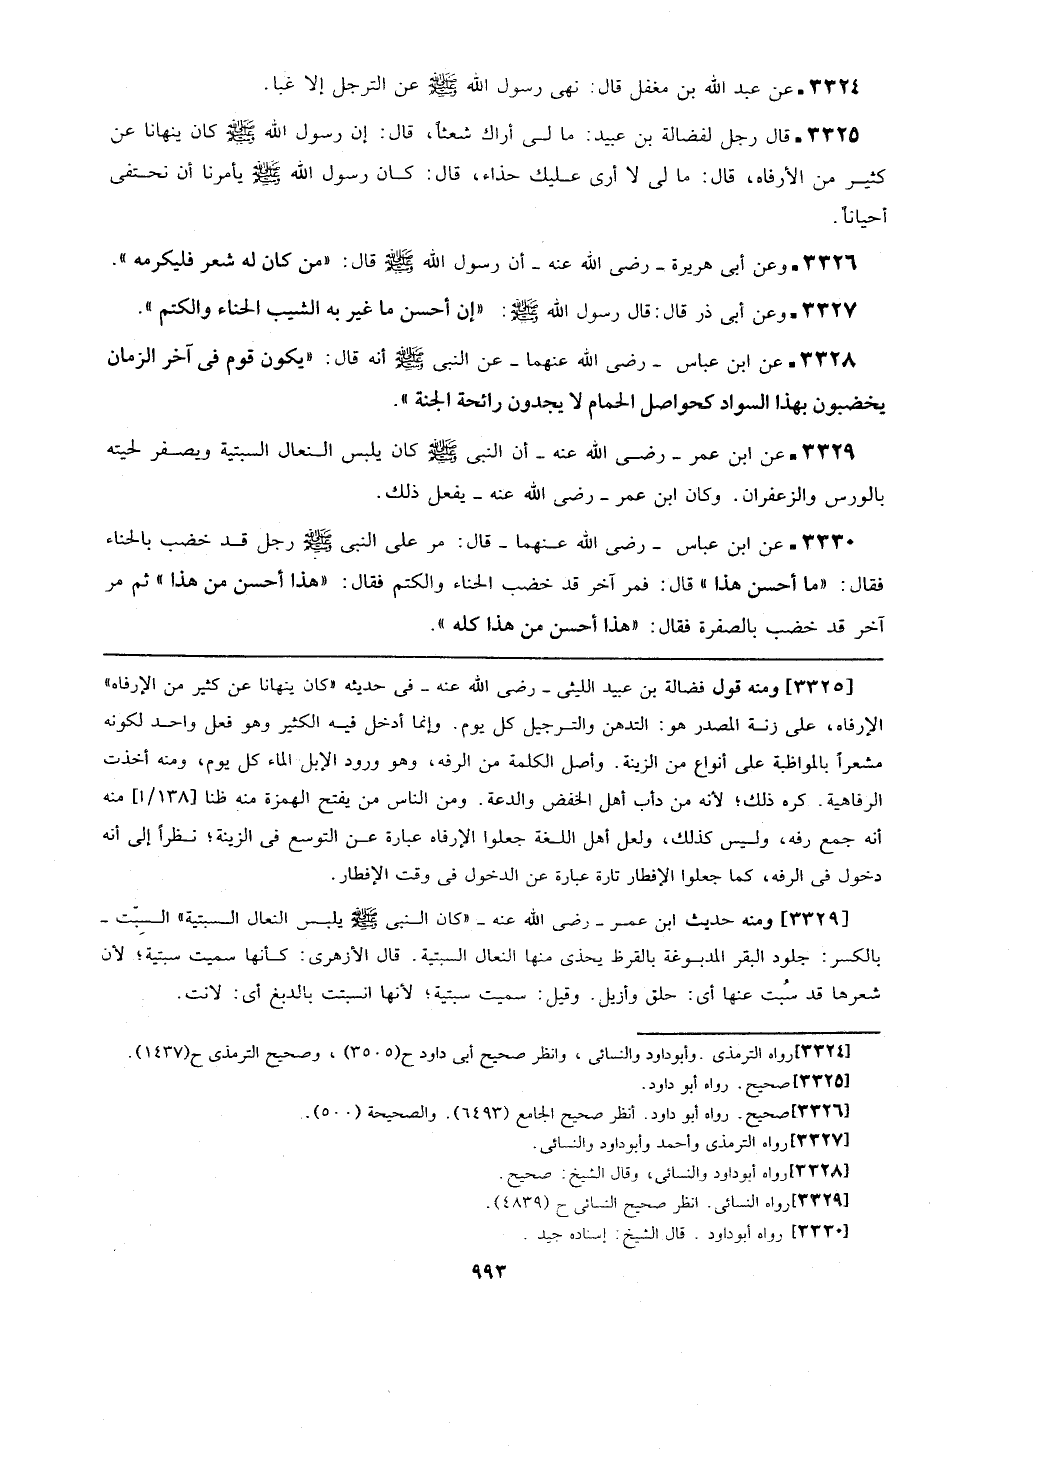 ٣٣٢٤ـ عن عبد الله بن مغفل قال: نهى رسول الله ﷺ عن الترجل إلا غبا.
٣٣٢٥ـ قال رجل لفضالة بن عبيد: ما لـى أراك شعثاً، قال: إن رسول الله ﷺ كان ينهانا عن
كثيـر من الأرفاه، قال: ما لى لا أرى عـليك حذاء، قال: كـان رسول الله ﷺ يأمرنا أن نحـتفى
أحياناً.
٣٣٢٦ـ وعن أبى هريرة ـ رضى الله عنه ـ أن رسول الله ﷺ قال: «من كان له شعر فليكرمه».
٣٣٢٧ـ وعن أبى ذر قال: قال رسول الله ﷺ: «إن أحسن ما غير به الشيب الحناء والكتم».
٣٣٢٨ـ عن ابن عباس ـ رضى الله عنهما ـ عن النبى ﷺ أنه قال: «يكون قوم فى آخر الزمان
يخضبون بهذا السواد كحواصل الحمام لا يجدون رائحة الجنة».
٣٣٢٩ـ عن ابن عمر ـ رضـى الله عنه ـ أن النبى ﷺ كان يلبس الـنعال السبتية ويصـفر لحيته
بالورس والزعفران. وكان ابن عمر ـ رضى الله عنه ـ يفعل ذلك.
٣٣٣٠ـ عن ابن عباس ـ رضى الله عـنهما ـ قال: مر على النبى ﷺ رجل قـد خضب بالحناء
فقال: «ما أحسن هذا» قال: فمر آخر قد خضب الحناء والكتم فقال: «هذا أحسن من هذا» ثم مر
آخر قد خضب بالصفرة فقال: «هذا أحسن من هذا كله».
[٣٣٢٥] ومنه قول فضالة بن عبيد الليثى ـ رضى الله عنه ـ فى حديثه «كان ينهانا عن كثير من الإرفاه»
الإرفاه، على زنـة المصدر هو: التدهن والتـرجيل كل يوم. وإنما أدخل فيـه الكثير وهو فعل واحـد لكونه
مشعراً بالمواظبة على أنواع من الزينة. وأصل الكلمة من الرفه، وهو ورود الإبل الماء كل يوم، ومنه أخذت
الرفاهية. كره ذلك؛ لأنه من دأب أهل الخفض والدعة. ومن الناس من يفتح الهمزة منه ظنا [١/١٣٨] منه
أنه جمع رفه، ولـيس كذلك، ولعل أهل اللـغة جعلوا الإرفاه عبارة عـن التوسع فى الزينة؛ نـظراً إلى أنه
دخول فى الرفه، كما جعلوا الإفطار تارة عبارة عن الدخول فى وقت الإفطار.
[٣٣٢٩] ومنه حديث ابن عمـر ـ رضى الله عنه ـ «كان الـنبى ﷺ يلبـس النعال الـسبتية» الـسِّبت ـ
بالكسر: جلود البقر المدبـوغة بالقرظ يحذى منها النعال السبتية. قال الأزهرى: كـأنها سميت سبتية؛ لأن
شعرها قد سُبت عنها أى: حلق وأزيل. وقيل: سميت سبتية؛ لأنها انسبتت بالدبغ أى: لانت.
[٣٣٢٤]رواه الترمذى .وأبوداود والنسائى ، وانظر صحيح أبى داود ح(٣٥٠٥) ، وصحيح الترمذى ح(١٤٣٧).
[٣٣٢٥]صحيح. رواه أبو داود.
[٣٣٢٦]صحيح. رواه أبو داود. أنظر صحيح الجامع (٦٤٩٣). والصحيحة (٥٠٠).
[٣٣٢٧]رواه الترمذى وأحمد وأبوداود والنسائى.
[٣٣٢٨]رواه أبوداود والنسائى، وقال الشيخ: صحيح.
[٣٣٢٩]رواه النسائى. انظر صحيح النسائى ح (٤٨٣٩).
[٣٣٣٠] رواه أبوداود . قال الشيخ: إسناده جيد .
٩٩٣